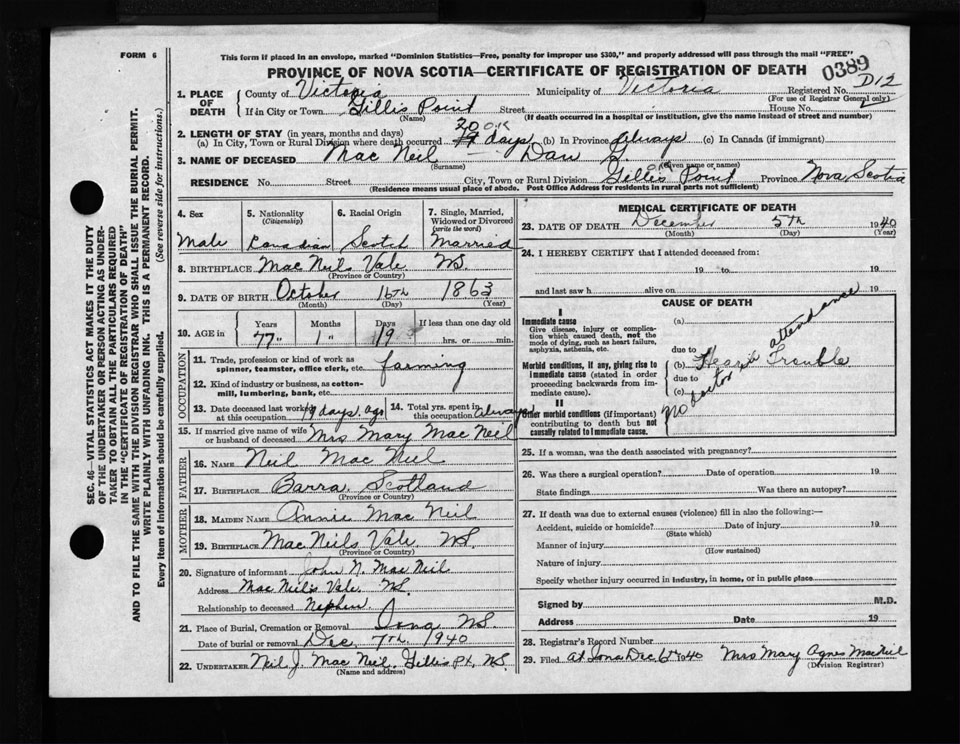 FORM 6
This form if placed in an envelope, marked "Dominion Statistics—Free, penalty for improper use $300," and properly addressed will pass through the mail "FREE"
PROVINCE OF NOVA SCOTIA—CERTIFICATE OF REGISTRATION OF DEATH
0389
1. PLACE OF DEATH
County of Victoria Municipality of Victoria Registered No. D12
(For use of Registrar General only)
If in City or Town Gillis Point Street House No.
(Name) (If death occurred in a hospital or institution, give the name instead of street and number)
2. LENGTH OF STAY (in years, months and days)
(a) In City, Town or Rural Division where death occurred 19 days (b) In Province always (c) In Canada (if immigrant)
3. NAME OF DECEASED Mac Neil Dan
(Surname) (Given name or names)
RESIDENCE No. Street City, Town or Rural Division Gillis Point Province Nova Scotia
(Residence means usual place of abode. Post Office Address for residents in rural parts not sufficient)
4. Sex
Male
5. Nationality
(Citizenship)
Canadian
6. Racial Origin
Scotch
7. Single, Married, Widowed or Divorced
(write the word)
Married
8. BIRTHPLACE Mac Neils Vale NS.
(Province or Country)
9. DATE OF BIRTH October 16th 1863
(Month) (Day) (Year)
10. AGE in
Years Months Days If less than one day old
77 1 19 hrs. or min.
OCCUPATION
11. Trade, profession or kind of work as spinner, teamster, office clerk, etc. farming
12. Kind of industry or business, as cotton-mill, lumbering, bank, etc.
13. Date deceased last worked at this occupation 19 days ago
14. Total yrs. spent in this occupation always
15. If married give name of wife or husband of deceased Mrs Mary Mac Neil
FATHER
16. NAME Neil Mac Neil
17. BIRTHPLACE Barra. Scotland
(Province or Country)
MOTHER
18. MAIDEN NAME Annie Mac Neil
19. BIRTHPLACE Mac Neils Vale. NS.
(Province or Country)
20. Signature of informant John N. Mac Neil
Address Mac Neil's Vale. NS.
Relationship to deceased Nephew.
21. Place of Burial, Cremation or Removal Iona NS.
Date of burial or removal Dec 7th. 1940
22. UNDERTAKER Neil J. Mac Neil. Gillis Pt, NS.
(Name and address)
MEDICAL CERTIFICATE OF DEATH
23. DATE OF DEATH December 5th 1940
(Month) (Day) (Year)
24. I HEREBY CERTIFY that I attended deceased from:
19 to 19
and last saw h alive on 19
CAUSE OF DEATH
I
Immediate cause
Give disease, injury or complication which caused death, not the mode of dying, such as heart failure, asphyxia, asthenia, etc.
(a)
due to
Morbid conditions, if any, giving rise to immediate cause (stated in order proceeding backwards from immediate cause).
(b) Heart Trouble
due to
(c)
no doctor in attendance
II
Other morbid conditions (if important) contributing to death but not causally related to immediate cause.
25. If a woman, was the death associated with pregnancy?
26. Was there a surgical operation? Date of operation 19
State findings Was there an autopsy?
27. If death was due to external causes (violence) fill in also the following:—
Accident, suicide or homicide? Date of injury 19
(State which)
Manner of injury
(How sustained)
Nature of injury
Specify whether injury occurred in industry, in home, or in public place
Signed by M.D.
Address Date 19
28. Registrar's Record Number
29. Filed at Iona Dec 6th 1940 Mrs Mary Agnes MacNeil
(Division Registrar)
SEC. 46—VITAL STATISTICS ACT MAKES IT THE DUTY
OF THE UNDERTAKER OR PERSON ACTING AS UNDER-
TAKER TO OBTAIN ALL THE PARTICULARS REQUIRED
IN THE "CERTIFICATE OF REGISTRATION OF DEATH"
AND TO FILE THE SAME WITH THE DIVISION REGISTRAR WHO SHALL ISSUE THE BURIAL PERMIT.
WRITE PLAINLY WITH UNFADING INK. THIS IS A PERMANENT RECORD.
Every item of information should be carefully supplied. (See reverse side for instructions.)